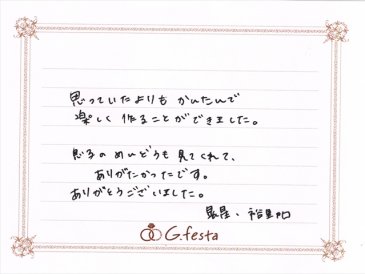 思っていたよりも かんたんで
楽しく 作ることができました。
息子の めいどうも 見てくれて、
ありがたかったです。
ありがとうございました。
G.festa